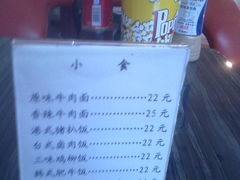 小食
原味牛肉面……………22 元
香辣牛肉面……………25 元
港式猪扒饭……………22 元
台式卤肉饭……………22 元
三味鸡柳饭……………22 元
韩式肥牛饭……………22 元